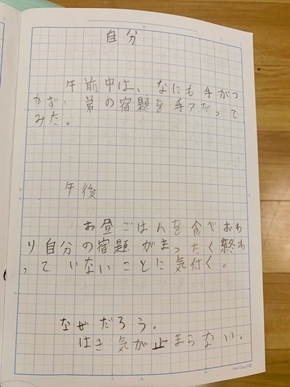 自分
午前中は、なにも手がつ
かず 弟の宿題を手つだって
みた。
午後
お昼ごはんを食べおわ
り自分の宿題がまったく終わ
っていないことに気付く。
なぜだろう。
はき気が止まらない。